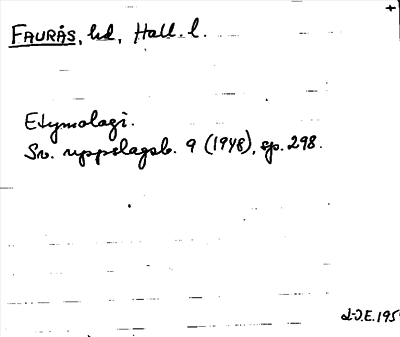 +
FAURÅS, hd, Hall. l.
Etymologi.
Sv. uppslagsb. 9 (1948), sp. 298.
L-J.E. 195